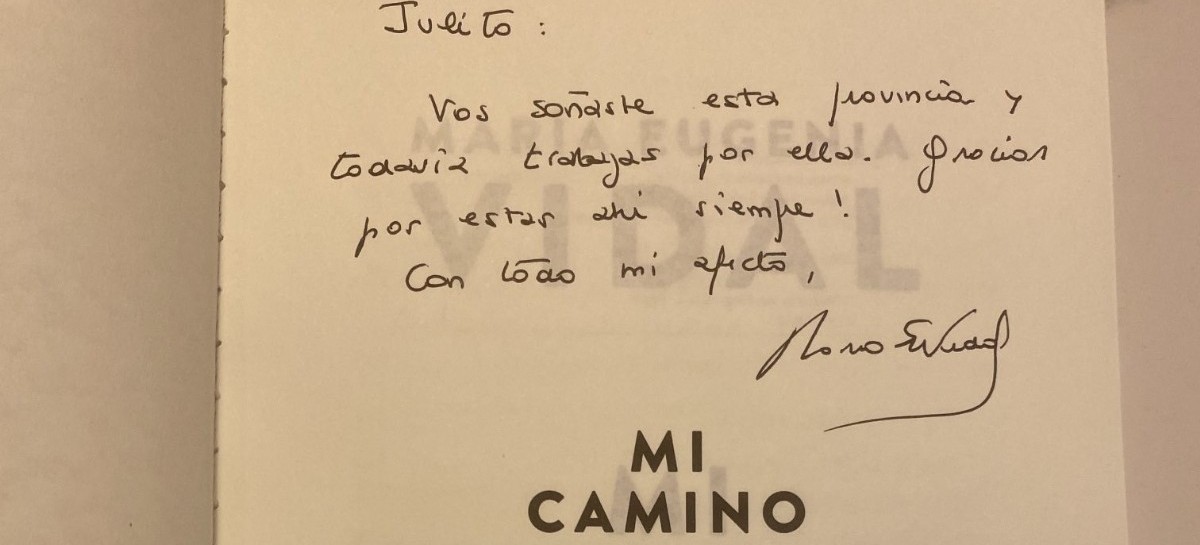 Julito :
Vos soñaste esta provincia y
todavía trabajas por ella. Gracias
por estar ahí siempre !
Con todo mi afecto,
María E Vidal
MARÍA EUGENIA
VIDAL
MI
CAMINO
MI